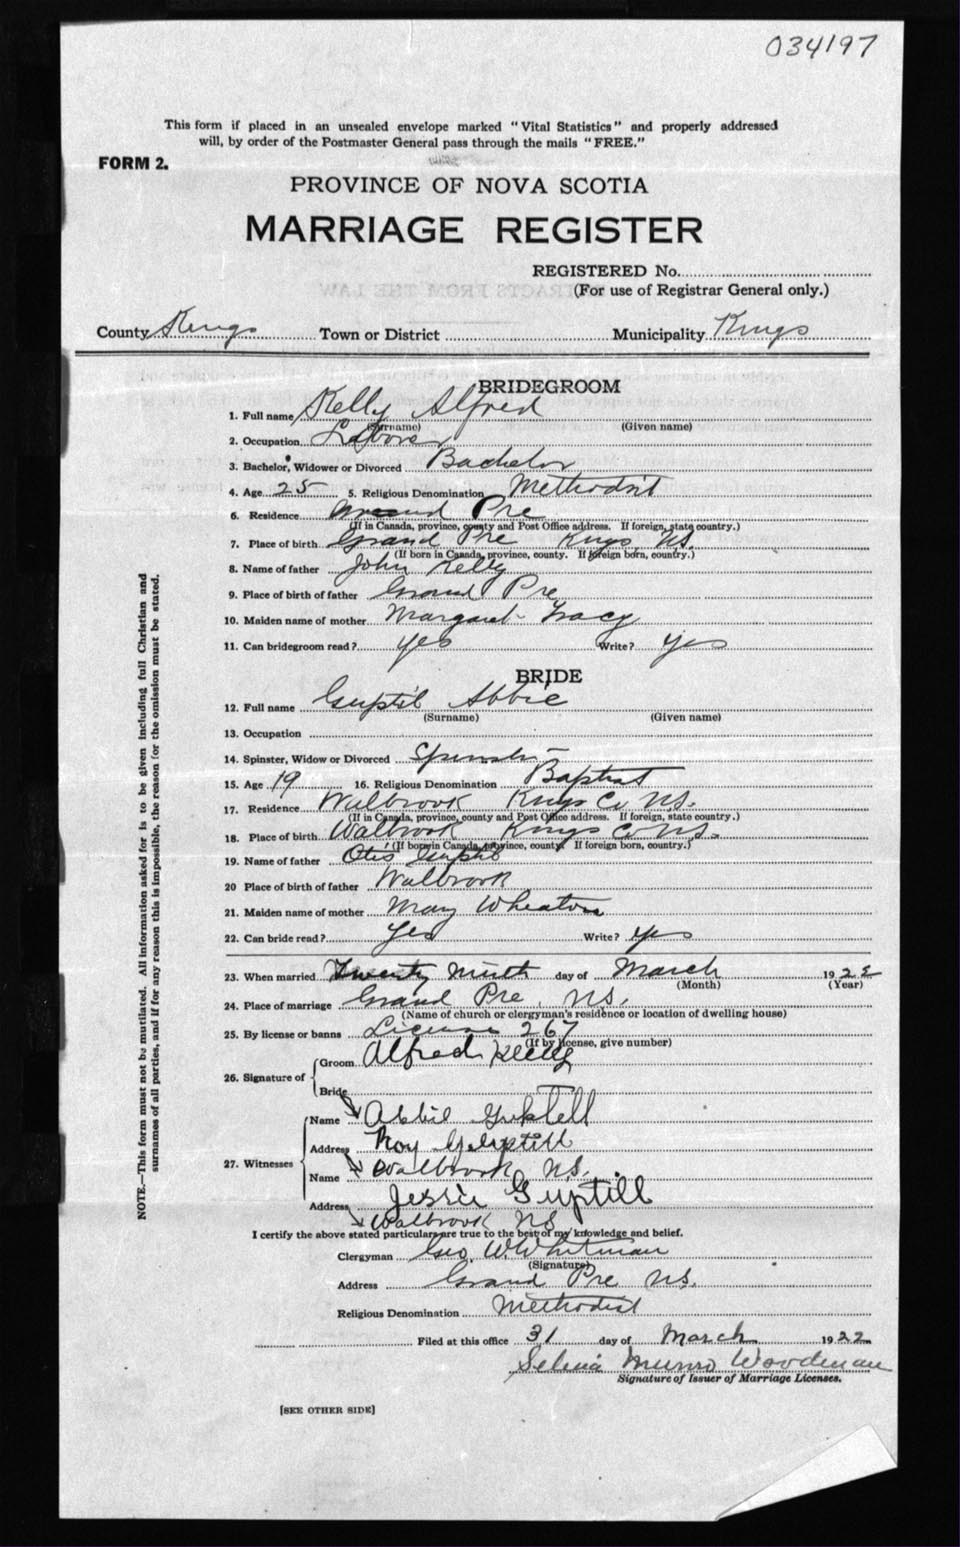 034197
This form if placed in an unsealed envelope marked "Vital Statistics" and properly addressed
will, by order of the Postmaster General pass through the mails "FREE."
FORM 2.
PROVINCE OF NOVA SCOTIA
MARRIAGE REGISTER
REGISTERED No.
(For use of Registrar General only.)
County Kings Town or District Municipality Kings
BRIDEGROOM
1. Full name Kelly Alfred
(Surname) (Given name)
2. Occupation Labore
3. Bachelor, Widower or Divorced Bachelor
4. Age 25 5. Religious Denomination Methodist
6. Residence Grand Pre
(If in Canada, province, county and Post Office address. If foreign, state country.)
7. Place of birth Grand Pre Kings NS.
(If born in Canada, province, county. If foreign born, country.)
8. Name of father John Kelly
9. Place of birth of father Grand Pre
10. Maiden name of mother Margaret Tracy
11. Can bridegroom read? yes Write? yes
BRIDE
12. Full name Guptil Abbie
(Surname) (Given name)
13. Occupation
14. Spinster, Widow or Divorced Spinster
15. Age 19 16. Religious Denomination Baptist
17. Residence Walbrook Kings Co NS.
(If in Canada, province, county and Post Office address. If foreign, state country.)
18. Place of birth Walbrook Kings Co NS.
(If born in Canada, province, county. If foreign born, country.)
19. Name of father Otis Guptil
20 Place of birth of father Walbrook
21. Maiden name of mother May Wheaton
22. Can bride read? Yes Write? yes
23. When married Twenty Ninth day of March 1922
(Month) (Year)
24. Place of marriage Grand Pre, NS.
(Name of church or clergyman's residence or location of dwelling house)
25. By license or banns License 267
(If by license, give number)
26. Signature of Groom Alfred Kelly
Bride
27. Witnesses Name Abbie Guptell
Address Roy Guptill
Name Walbrook NS.
Address Jessie Guptill
Walbrook NS
I certify the above stated particulars are true to the best of my knowledge and belief.
Clergyman Geo. W. Whitman
(Signature)
Address Grand Pre NS.
Religious Denomination Methodist
Filed at this office 31 day of March 1922
Selina Munro Woodman
Signature of Issuer of Marriage Licenses.
[SEE OTHER SIDE]
NOTE.—This form must not be mutilated. All information asked for is to be given including full Christian and
surnames of all parties, and if for any reason this is impossible, the reason for the omission must be stated.